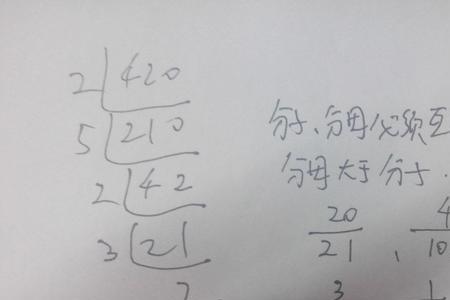 2 420
5 210
2 42
3 21
分子、分母必须互
分母大于分子.
20/21 、 4/10
3 1